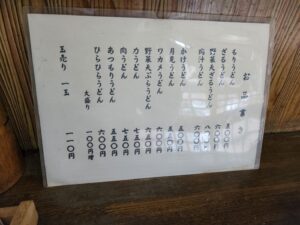 お品書き
もりうどん 五〇〇円
ざるうどん 六〇〇円
野菜天ざるうどん 八〇〇円
肉汁うどん 六〇〇円
かけうどん 五〇〇円
月見うどん 五五〇円
ワカメうどん 六五〇円
野菜天ぷらうどん 七五〇円
力うどん 七五〇円
肉うどん 五五〇円
あつもりうどん 六〇〇円
ひらひらうどん
大盛り 一〇〇円増
玉売り 一玉 一一〇円